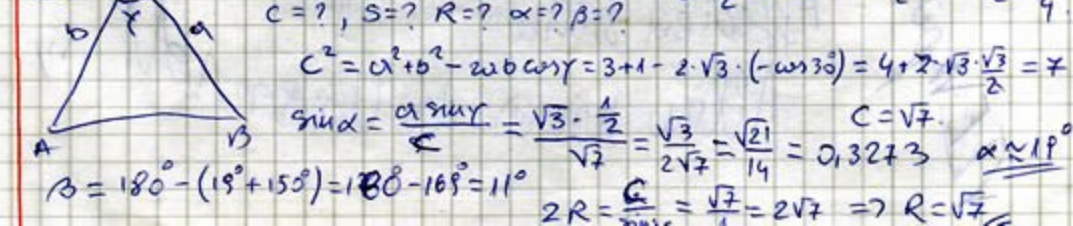 b γ a
C = ? , S = ? R = ? α = ? β = ?
c² = a² + b² - 2ab cosγ = 3 + 1 - 2·√3·(-cos30°) = 4 + 2·√3·√3/2 = 7
sinα = a sinγ / c = √3 · 1/2 / √7 = √3 / 2√7 = √21 / 14 = 0,3273
C = √7.
α ≈ 19°
A B
β = 180° - (19° + 150°) = 180° - 169° = 11°
2R = c / = √7 / = 2√7 => R = √7